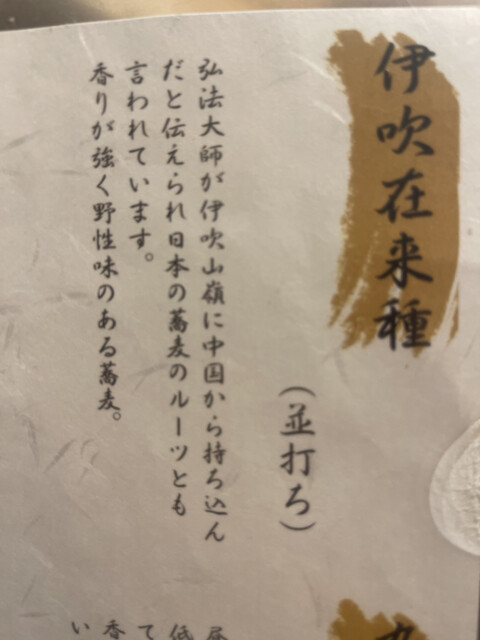 伊吹在来種
（並打ち）
弘法大師が伊吹山嶺に中国から持ち込ん
だと伝えられ日本の蕎麦のルーツとも
言われています。
香りが強く野性味のある蕎麦。
低
て
香
い